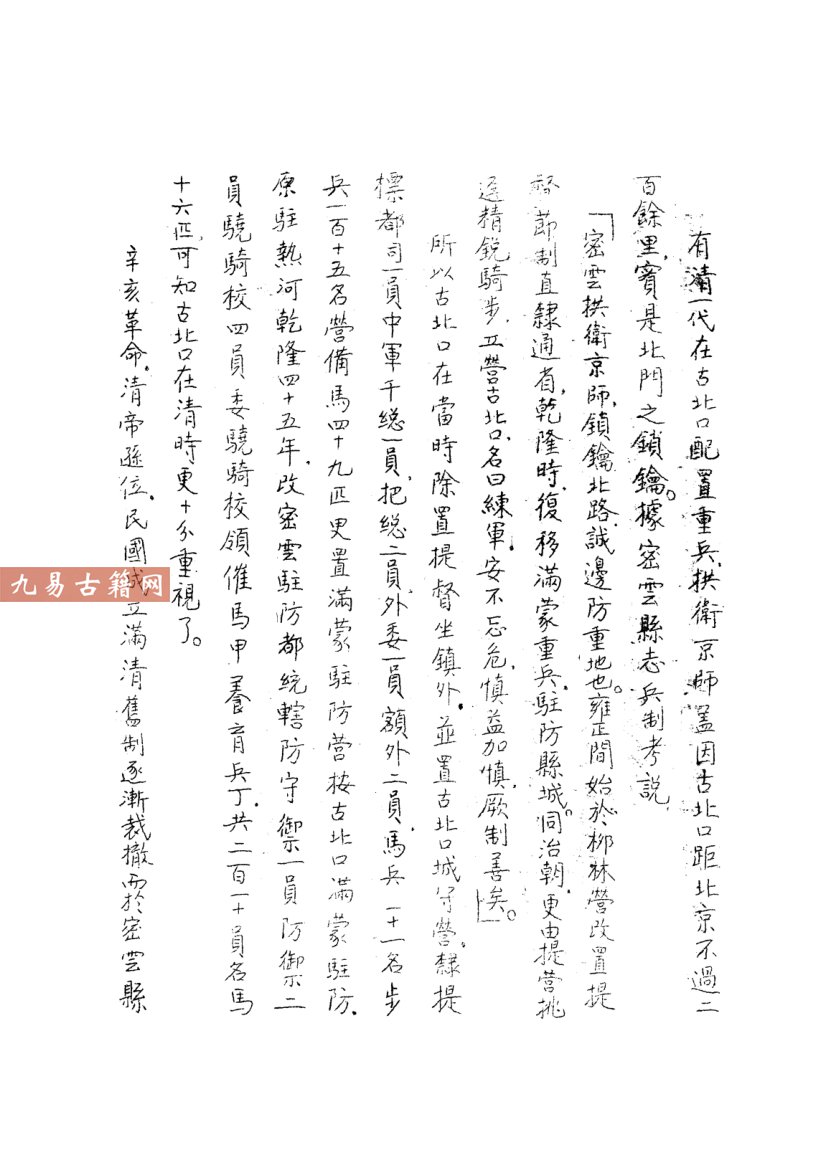 有清一代在古北口配置重兵,拱衛京師蓋因古北口距北京不過二
百餘里,實是北門之鎖鑰。據密雲縣志兵制考說
「密雲拱衛京師,鎖鑰北路,誠邊防重地也。雍正間始於柳林營改置提
督節制直隸通省,乾隆時,復移滿蒙重兵,駐防縣城。同治朝,更由提營挑
選精銳騎步,立營古北口,名曰練軍,安不忘危,慎益加慎,厥制善矣。」
所以古北口在當時除置提督坐鎮外,並置古北口城守營,隸提
標都司一員中軍千総一員,把総二員,外委一員額外二員,馬兵一十一名步
兵一百十五名營備馬四十九匹更置滿蒙駐防營按古北口滿蒙駐防,
原駐熱河乾隆四十五年,改密雲駐防都統轄防守御一員防御二
員驍騎校四員委驍騎校領催馬甲養育兵丁,共二百一十員名馬
十六匹,可知古北口在清時更十分重視了。
辛亥革命,清帝遜位,民國成立滿清舊制逐漸裁撤而於密雲縣
九易古籍网